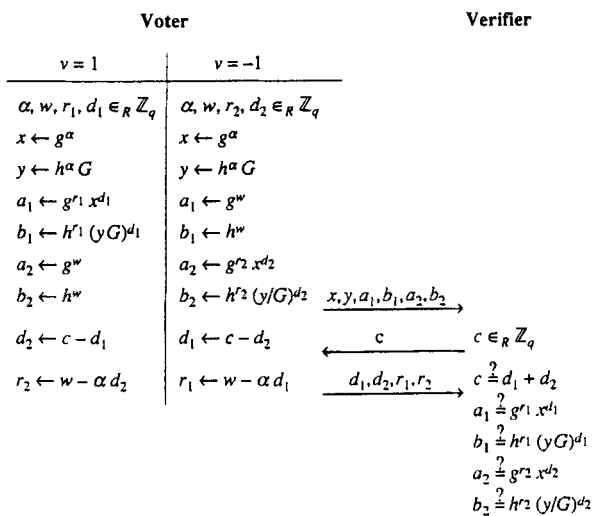 Voter Verifier
v = 1 v = −1
α, w, r₁, d₁ ∈_R ℤ_q α, w, r₂, d₂ ∈_R ℤ_q
x ← g^α x ← g^α
y ← h^α G y ← h^α G
a₁ ← g^{r₁} x^{d₁} a₁ ← g^w
b₁ ← h^{r₁} (yG)^{d₁} b₁ ← h^w
a₂ ← g^w a₂ ← g^{r₂} x^{d₂}
b₂ ← h^w b₂ ← h^{r₂} (y/G)^{d₂} x,y,a₁,b₁,a₂,b₂
d₂ ← c − d₁ d₁ ← c − d₂ c c ∈_R ℤ_q
r₂ ← w − α d₂ r₁ ← w − α d₁ d₁,d₂,r₁,r₂ c ≟ d₁ + d₂
a₁ ≟ g^{r₁} x^{d₁}
b₁ ≟ h^{r₁} (yG)^{d₁}
a₂ ≟ g^{r₂} x^{d₂}
b₂ ≟ h^{r₂} (y/G)^{d₂}